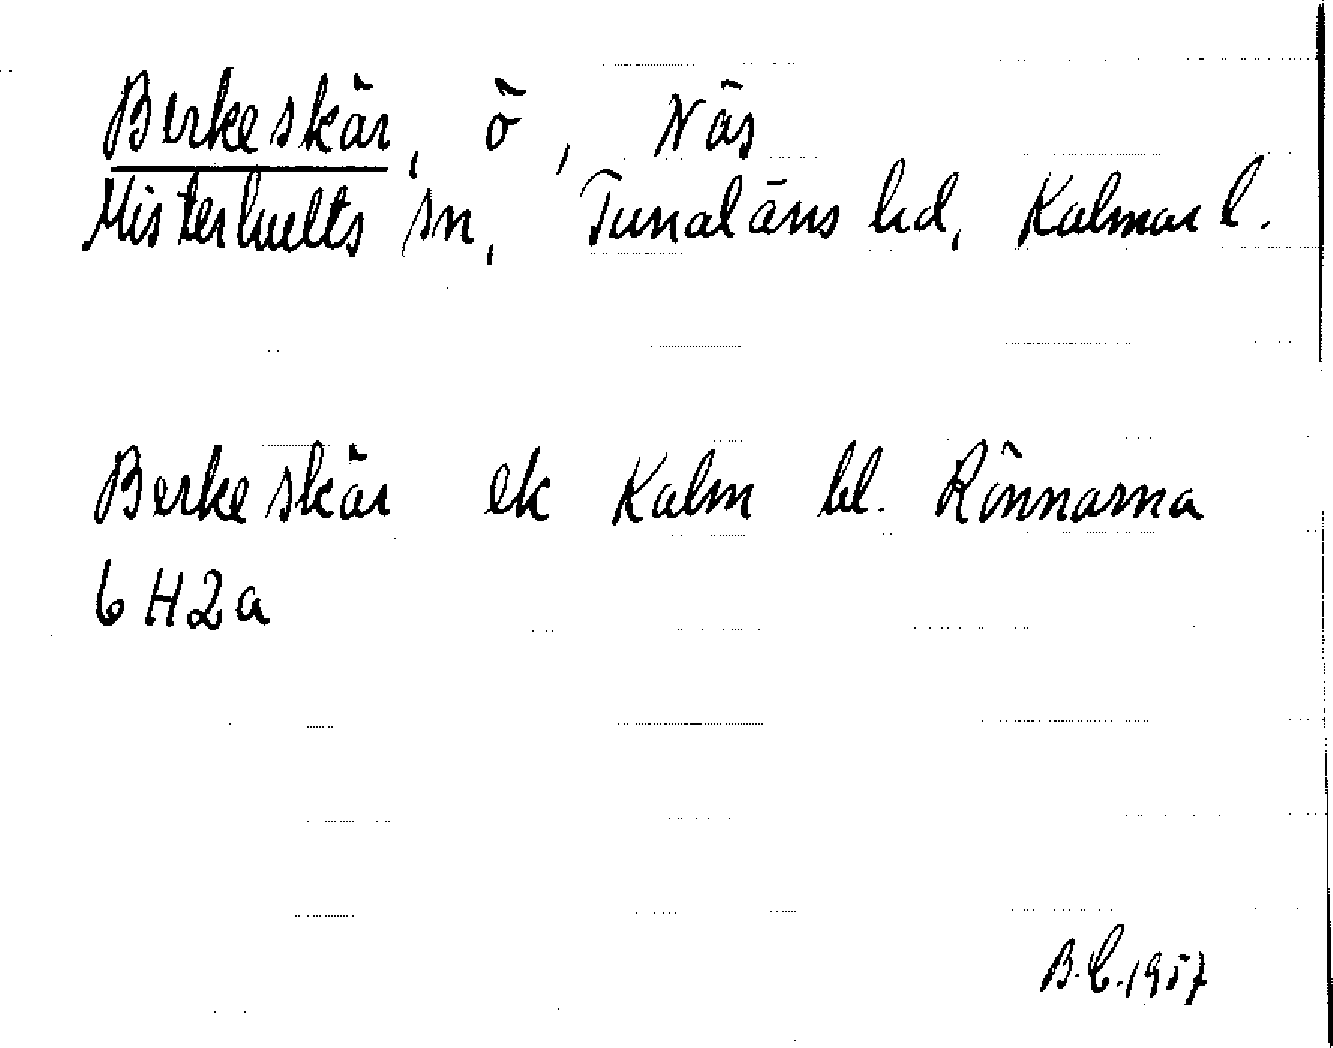 Berkeskär, ö, Näs
Misterhults sn, Tunaläns hd, Kalmar l.
Berkeskär ek Kalm bl. Rönnarna
6 H 2 a
B.C. 1957